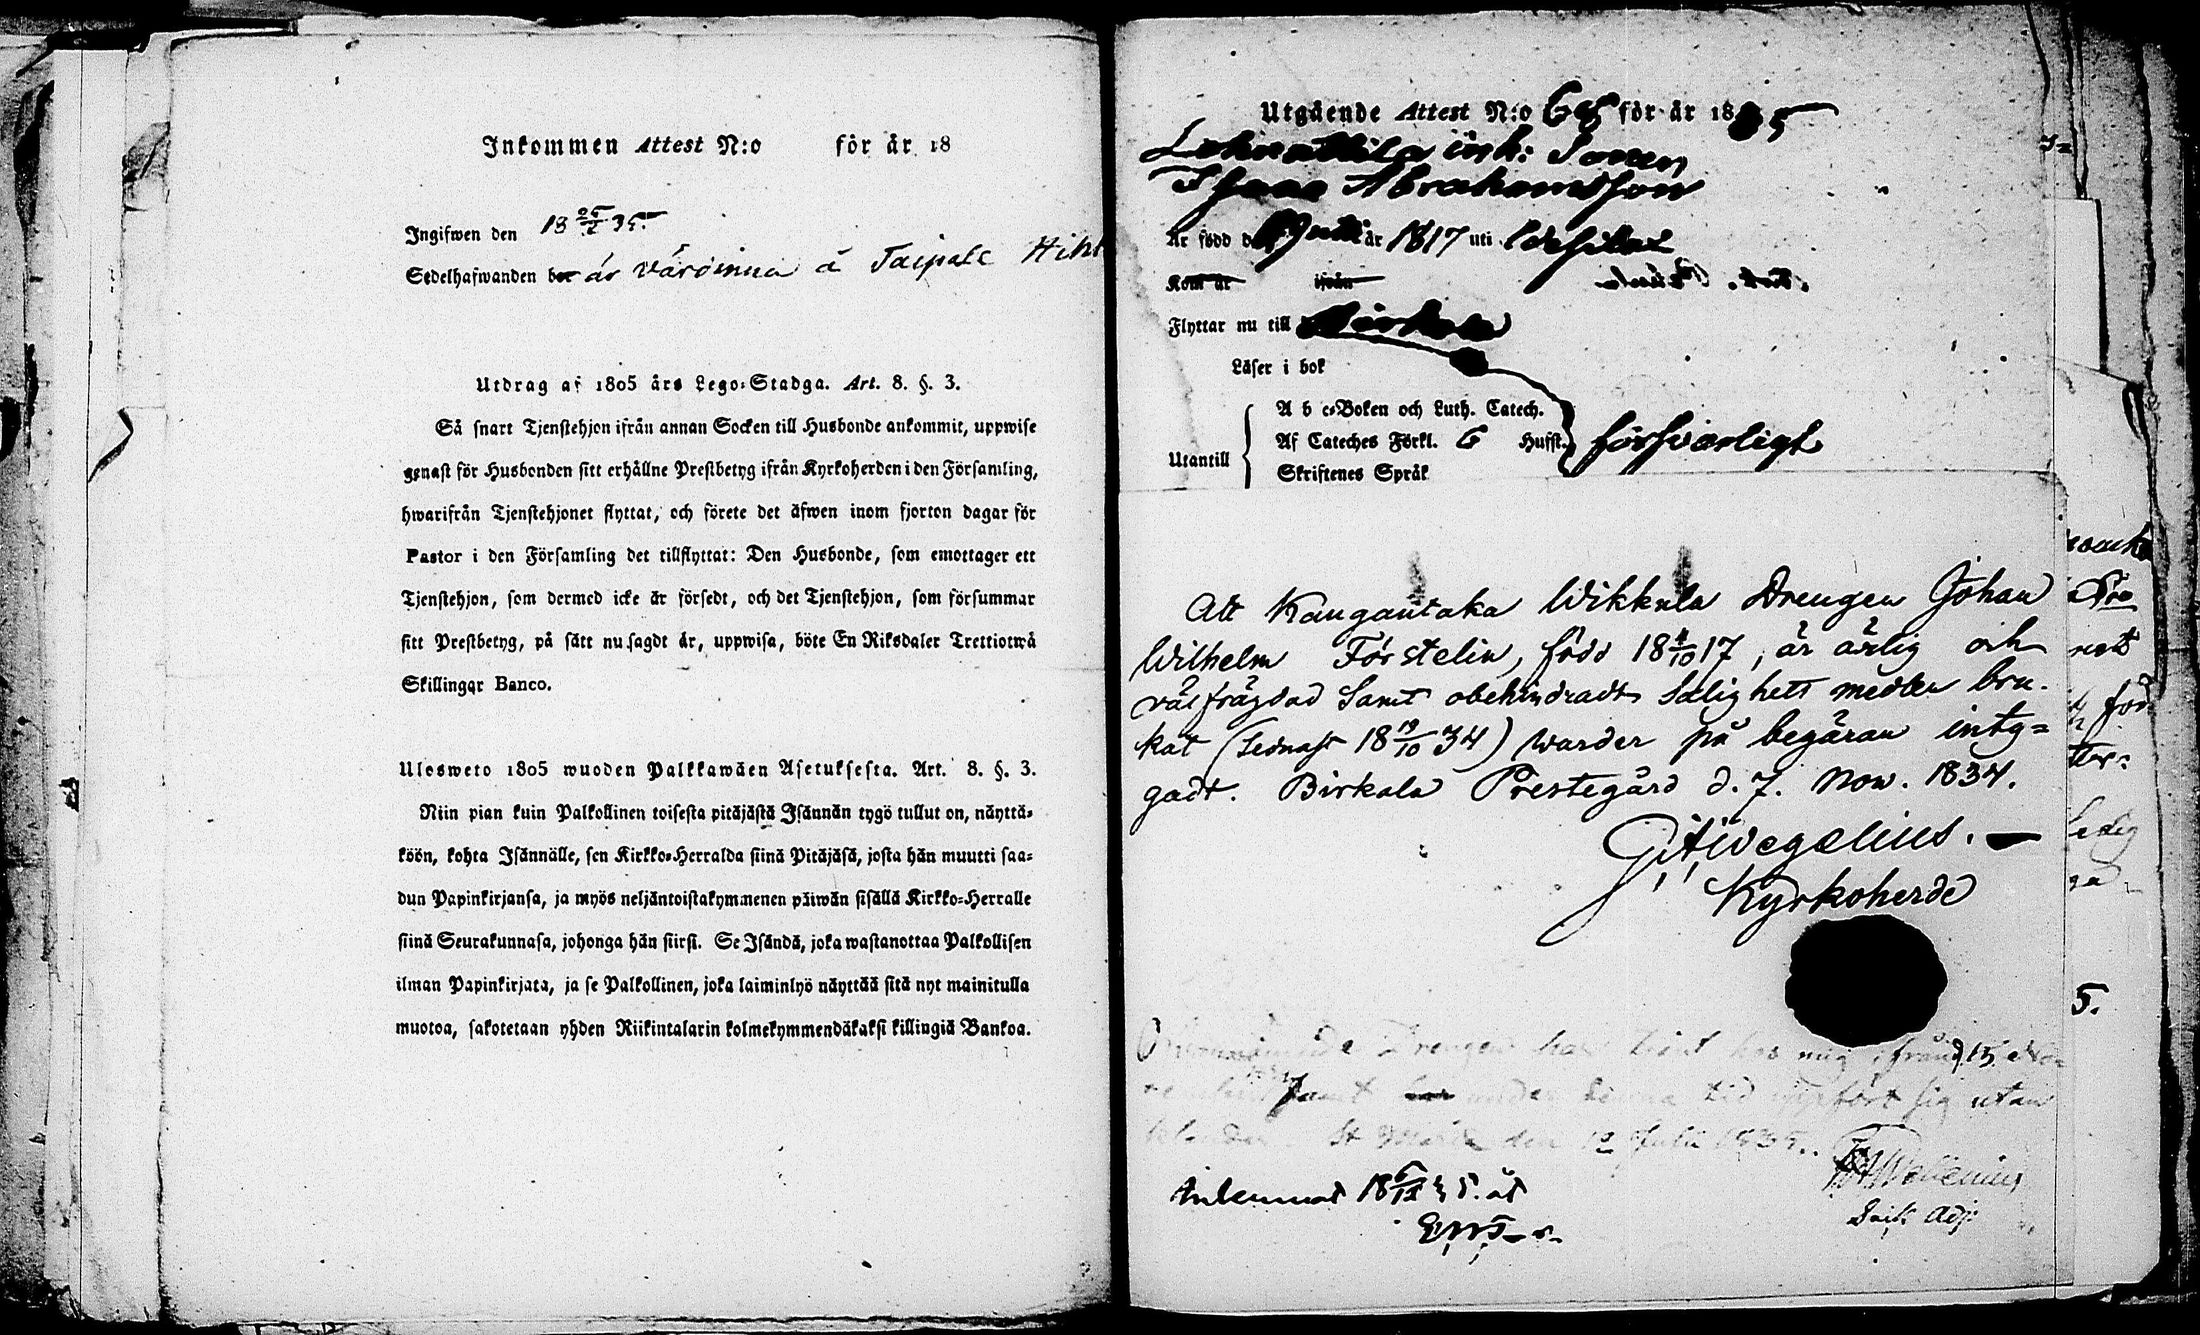 Inkommen Attest N:o för år 18
Ingifwen den 18 25/5 35.
Sedelhafwanden bor är värdinna å Taipale
Utdrag af 1805 års Lego-Stadga. Art. 8. §. 3.
Så snart Tjenstehjon ifrån annan Socken till Husbonde ankommit, uppwise
genast för Husbonden sitt erhållne Prestbetyg ifrån Kyrkoherden i den Församling,
hwarifrån Tjenstehjonet flyttat, och förete det äfwen inom fjorton dagar för
Pastor i den Församling det tillflyttat: Den Husbonde, som emottager ett
Tjenstehjon, som dermed icke är försedt, och det Tjenstehjon, som försummar
sitt Prestbetyg, på sätt nu sagdt är, uppwisa, böte En Riksdaler Trettiotwå
Skillingar Banco.
Ulosweto 1805 wuoden Palkkawäen Asetuksesta. Art. 8. §. 3.
Niin pian kuin Palkollinen toisesta pitäjästä Isännän tygö tullut on, näyttä-
köön, kohta Isännälle, sen Kirkko-Herralda siinä Pitäjäsä, josta hän muutti saa-
dun Papinkirjansa, ja myös neljäntoistakymmenen päiwän sisällä Kirkko-Herralle
siinä Seurakunnasa, johonga hän siirsi. Se Isändä, joka wastanottaa Palkollisen
ilman Papinkirjata, ja se Palkollinen, joka laiminlyö näyttää sitä nyt mainitulla
muotoa, sakotetaan yhden Riikintalarin kolmekymmendäkaksi killingiä Bankoa.
Utgående Attest N:o 68 för år 1835
inh: Sonen
Isaac Abrahamsson
Är född d. Juli år 1817 uti
Kom år ifrån
Flyttar nu till Birkala
Läser i bok
A b c-Boken och Luth. Catech.
Af Cateches Förkl. 6 Husst. försvarligt
Utantill
Skriftenes Språk
Att Kangantaka Wikkula Drengen Johan
Wilhelm Förstelin, född 18 4/10 17, är ärlig och
välfrägdad samt obehindradt Salighets medlen bru-
kat (sednast 18 19/10 34) warder på begäran inty-
gadt. Birkala Prestegård d. 7. Nov. 1834.
Wegelius.
Kyrkoherde
Drengen har tjent hos mig ifrån d. 15 No-
samt har under denna tid uppfört sig utan
klander. den 12 Juli 1835.
Adj:
Inlemnat 18 6/12 35. åt
5.